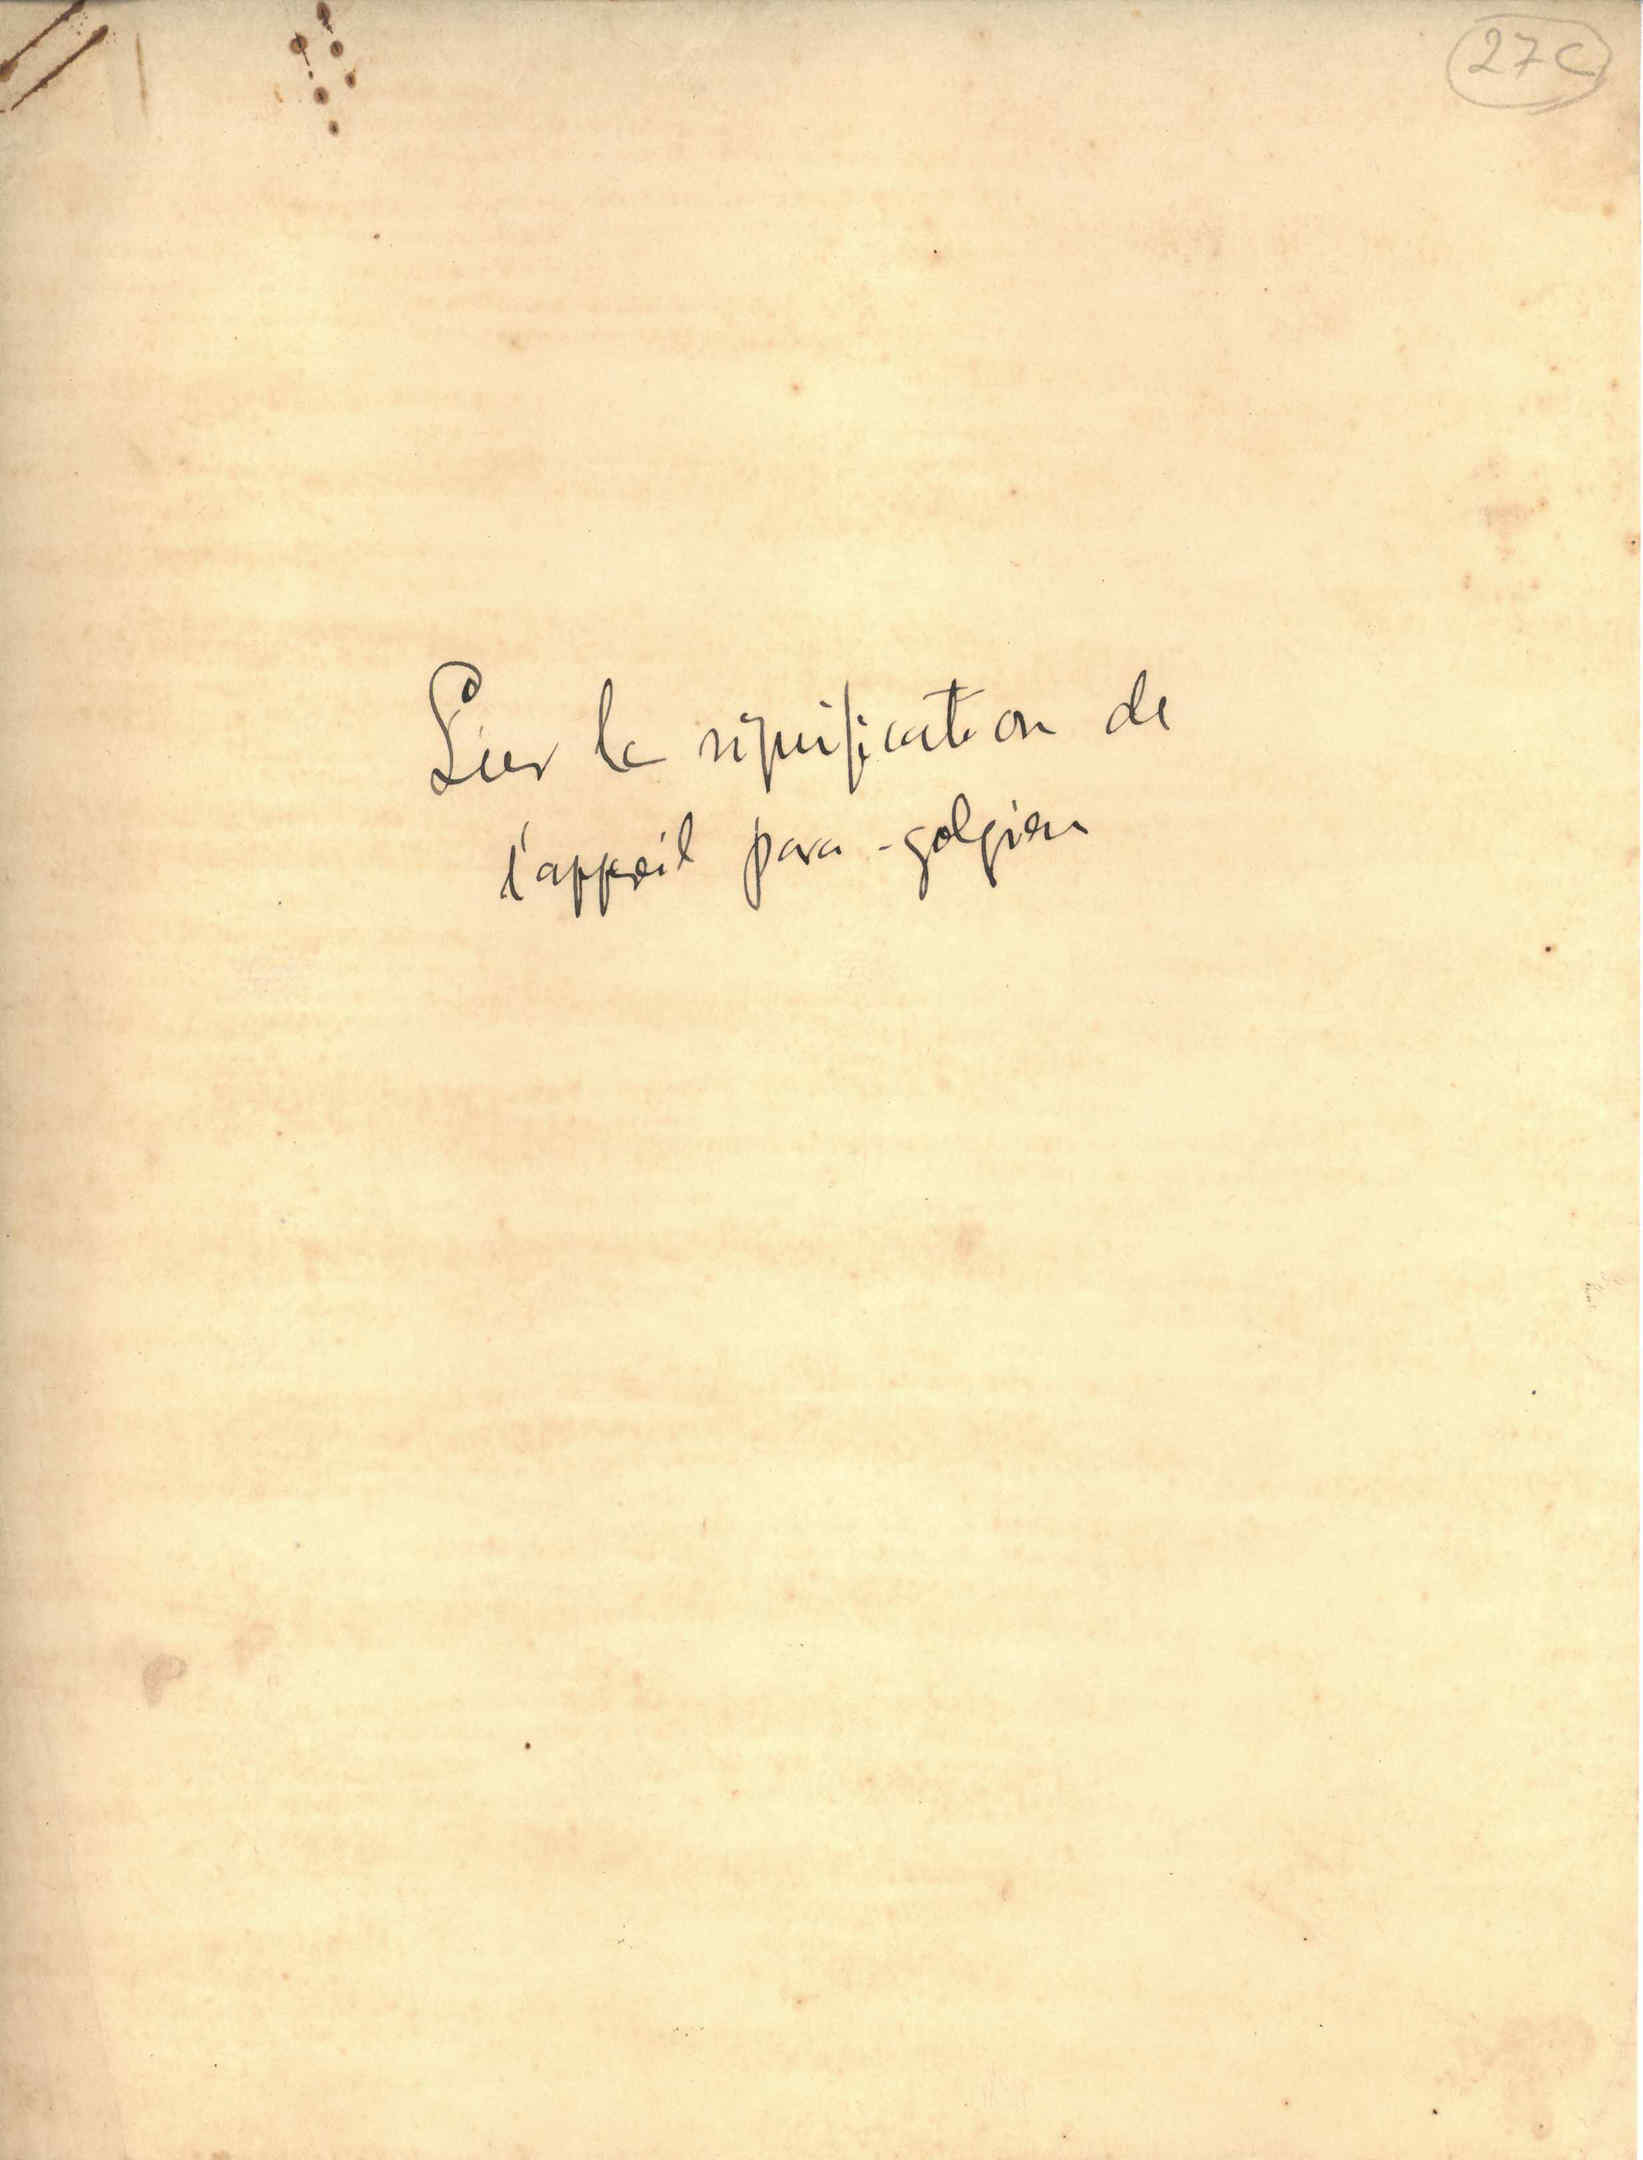 27C
Sur la signification de
l'appareil para-golgien